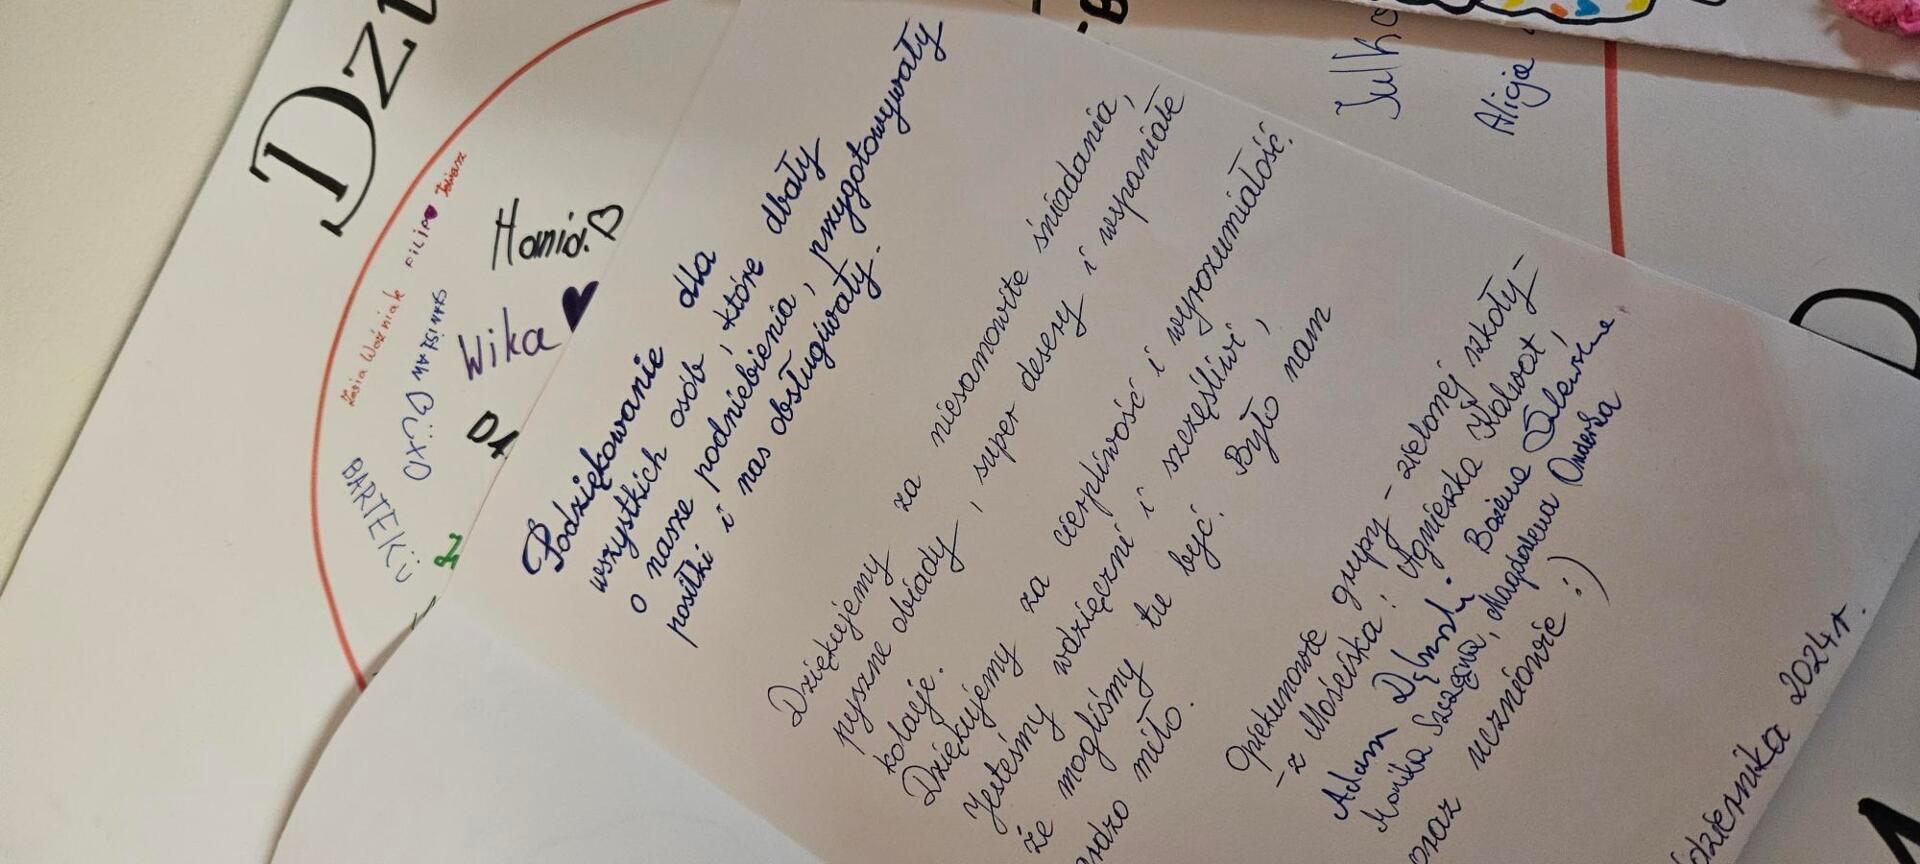 Podziękowanie dla
wszystkich osób, które dbały
o nasze podniebienia, przygotowywały
posiłki i nas obsługiwały.
Dziękujemy za niesamowite śniadania,
pyszne obiady, super desery i wspaniałe
kolacje.
Dziękujemy za cierpliwość i wyrozumiałość.
Jesteśmy wdzięczni i szczęśliwi,
że mogliśmy tu być. Było nam
ardzo miło.
Opiekunowie grupy - zielonej szkoły -
- z Mościska! Agnieszka Kalwot,
Adam Bożena Zalewska,
Monika Szczęsna, Magdalena Onderka
oraz uczniowie :)
dziernika 2024 r.
Dzi
Zosia Woźniak FILIP♥ Tobiasz
STANISŁAW
XD
BARTEK :)
Hania ♡
Wika ♥
Julk
Alicja